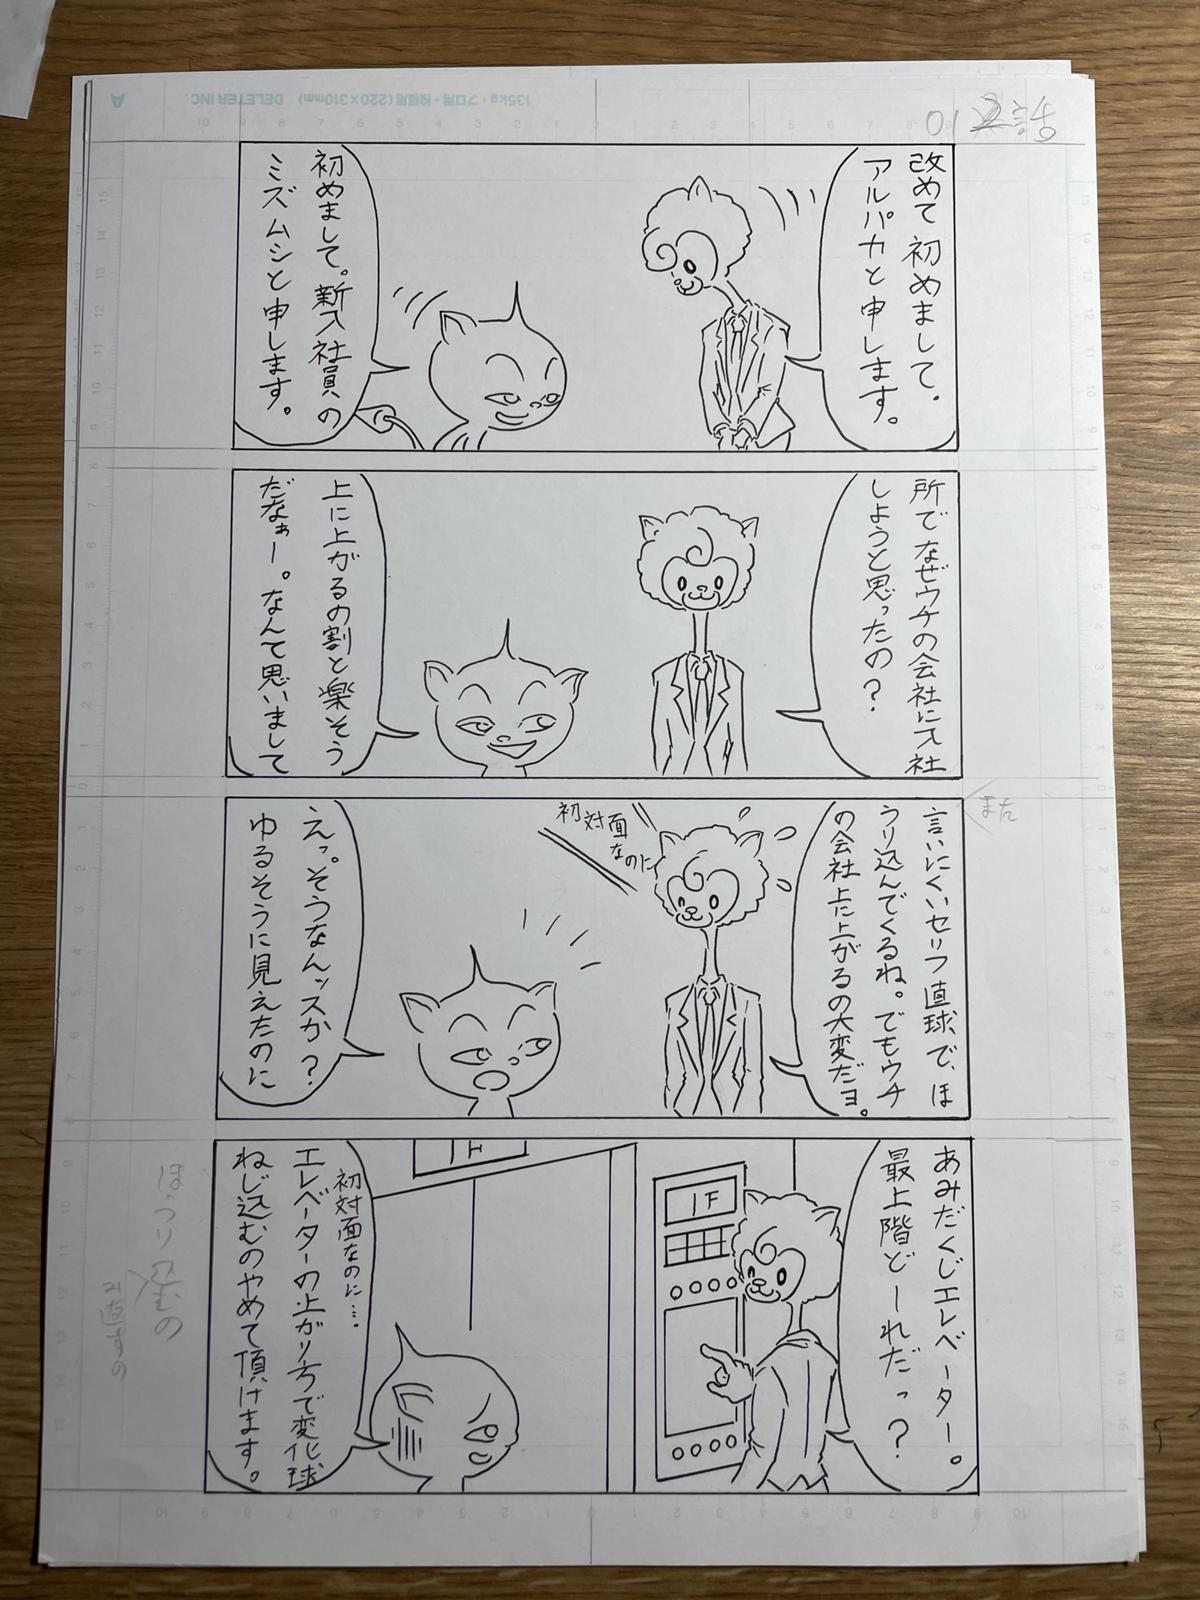 01 2話
改めて初めまして.
アルパカと申します。
初めまして。新入社員の
ミズムシと申します。
所でなぜウチの会社に入社
しようと思ったの?
上に上がるの割と楽そう
だなぁー。なんて思いまして
また
言いにくいセリフ直球で、ほ
うり込んでくるね。でもウチ
の会社上に上がるの大変だヨ。
初対面
なのに
えっ。そうなんッスか?
ゆるそうに見えたのに
あみだくじエレベーター。
最上階どーれだっ?
1F
1F
初対面なのに…。
エレベーターの上がり方で変化球
ねじ込むのやめて頂けます。
135kg・プロ用・投稿用(220×310mm) DELETER INC.
A